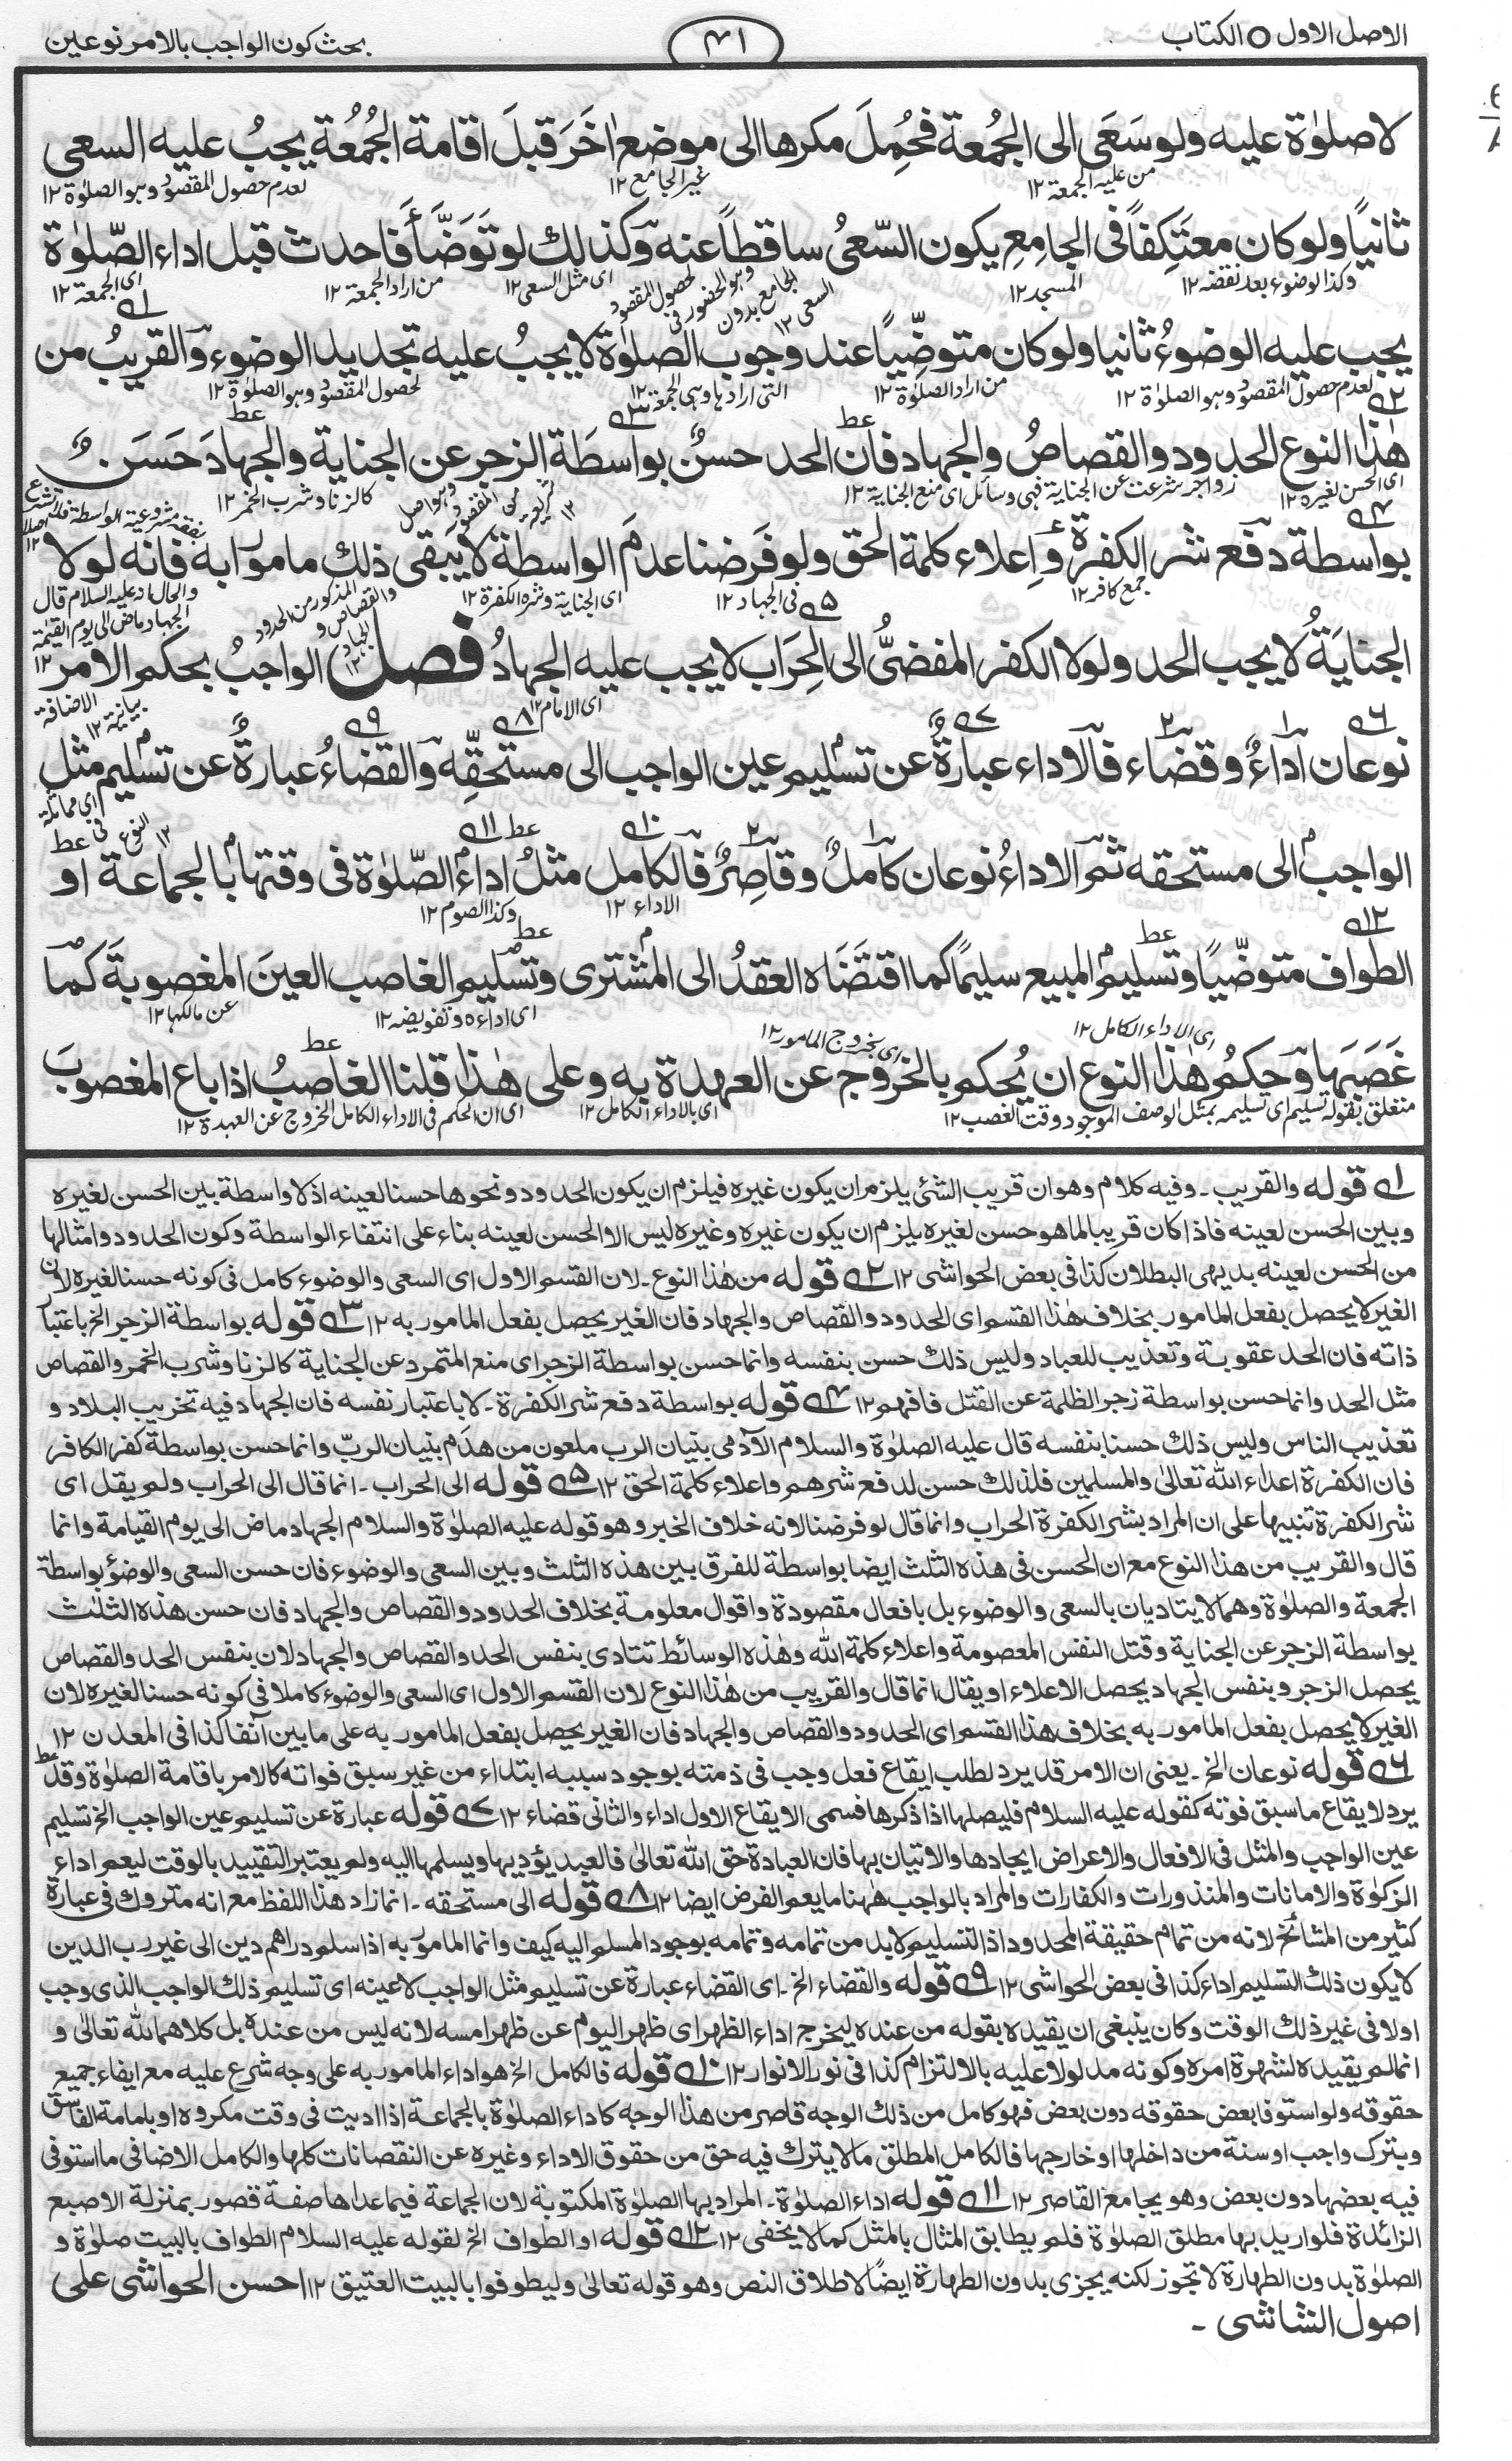 الاصل الاول ○ الكتاب
۴۱
بحث كون الواجب بالامر نوعين
لا صلوٰة عليه ولو سَعَى الى الجُمعة فحُمِلَ مكرها الى موضع اٰخَرَ قبلَ اقامة الجُمُعة يجبُ عليه السعى
من عليه الجمعة ۱۲
غير الجامع ۱۲
لعدم حصول المقصود وهو الصلوٰة ۱۲
ثانياً ولو كان معتكِفاً فى الجامِعِ يكون السّعىُ ساقطاً عنه وكذلك لو تَوَضَّأَ فَاحدث قبل اداء الصّلوٰة
وكذا الوضوء بعد نقضه ۱۲
المسجد ۱۲
السعى ۱۲
لحصول المقصود وهو الحضور فى الجامع بدون
اى مثل السعى ۱۲
من اراد الجمعة ۱۲
اى الجمعة ۱۲
يجب عليه الوضوءُ ثانيا ولو كان متوضِّياً عند وجوب الصلوٰة لا يجبُ عليه تجديد الوضوء والقريبُ من
لعدم حصول المقصود وهو الصلوٰة ۱۲
من اراد الصلوٰة ۱۲
التى ارادها وهى الجمعة ۱۲
لحصول المقصود وهو الصلوٰة ۱۲
هٰذا النوع الحدود والقصاصُ والجهاد فان الحد حسنٌ بواسطَة الزجر عن الجناية والجهادَ حَسَنٌ
اى الحسن لغيره ۱۲
زواجر شرعت عن الجناية فهى وسائل اى منع الجناية ۱۲
كالزنا وشرب الخمر ۱۲
بواسطة دفع شر الكفرة وَاِعلاء كلمة الحق ولو فَرضنا عدمَ الواسطة لا يَبقى ذلك مامورا به فانه لولا
جمع كافر ۱۲
فى الجهاد ۱۲
اى الجناية وشره الكفرة ۱۲
والحال انه عليه السلام قال
الجهاد ماض الى يوم القيٰمة ۱۲
الجنايَةُ لا يجب الحد ولولا الكفر المفضىُّ الى الحِرَاب لا يجب عليه الجهادُ فصل الواجبُ بحكم الامر
اى الامام ۱۲
الاضافة بيانية ۱۲
نوعان اداءٌ وقضاء فالاداء عبارةٌ عن تسليم عين الواجب الى مستحقِّه والقضاءُ عبارةٌ عن تسليم مثل
الواجب الى مستحقه ثم الاداءُ نوعان كاملٌ وقاصِرٌ فالكامل مثلُ اداء الصّلوٰة فى وقتها بالجماعة او
الاداء ۱۲
وكذا الصوم ۱۲
الطواف متوضّياً وتسليم المبيع سليماً كما اقتضَاه العقدُ الى المشترى وتسليم الغاصب العينَ المغصوبةَ كما
اى اداءه وتفويضه ۱۲
عن مالكها ۱۲
اى الاداء الكامل ۱۲
اى بخروج المامور ۱۲
غَصَبَها وحكمُ هٰذا النوع ان يُحكم بالخروج عن العهدة به وعلى هٰذا قلنا الغاصبُ اذا باع المغصوبَ
متعلق بقوله تسليم اى تسليمه بمثل الوصف الموجود وقت الغصب ۱۲
اى بالاداء الكامل ۱۲
اى ان الحكم فى الاداء الكامل الخروج عن العهدة ۱۲
۱ قوله والقريب ـ وفيه كلام وهو ان قريب الشئ يلزم ان يكون غيره فيلزم ان يكون الحدود ونحوها حسنا لعينه اذ لا واسطة بين الحسن لغيره
وبين الحسن لعينه فاذا كان قريبا لما هو حسن لغيره يلزم ان يكون غيره وغيره ليس الا والحسن لعينه بناء على انتفاء الواسطة وكون الحدود وامثالها
من الحسن لعينه بديهى البطلان كذا فى بعض الحواشى ۱۲ ۲ قوله من هٰذا النوع ـ لان القسم الاول اى السعى والوضوء كامل فى كونه حسنا لغيره لان
الغير لا يحصل بفعل المامور بخلاف هٰذا القسم اى الحدود والقصاص والجهاد فان الغير يحصل بفعل المامور به ۱۲ ۳ قوله بواسطة الزجر الخ باعتبار
ذاته فان الحد عقوبة وتعذيب للعباد وليس ذلك حسن بنفسه وانما حسن بواسطة الزجر اى منع المتمرد عن الجناية كالزنا وشرب الخمر والقصاص
مثل الحد وانما حسن بواسطة زجر الظلمة عن القتل فافهم ۱۲ ۴ قوله بواسطة دفع شر الكفرة ـ لا باعتبار نفسه فان الجهاد فيه تخريب البلاد و
تعذيب الناس وليس ذلك حسنا بنفسه قال عليه الصلوٰة والسلام الآدمى بنيان الرب ملعون من هدَم بنيان الربّ وانما حسن بواسطة كفر الكافر
فان الكفرة اعداء الله تعالىٰ والمسلمين فلذلك حسن لدفع شرهم واعلاء كلمة الحق ۱۲ ۵ قوله الى الحراب ـ انما قال الى الحراب ولم يقل اى
شر الكفرة تنبيها على ان المراد بشر الكفرة الحراب وانما قال لو فرضنا لانه خلاف الخبر وهو قوله عليه الصلوٰة والسلام الجهاد ماض الى يوم القيامة وانما
قال والقريب من هذا النوع مع ان الحسن فى هذه الثلث ايضا بواسطة للفرق بين هذه الثلث وبين السعى والوضوء فان حسن السعى والوضؤ بواسطة
الجمعة والصلوٰة وهما لا يتاديان بالسعى والوضوء بل بافعال مقصودة واقوال معلومة بخلاف الحدود والقصاص والجهاد فان حسن هذه الثلٰث
بواسطة الزجر عن الجناية وقتل النفس المعصومة واعلاء كلمة الله وهٰذه الوسائط تتادى بنفس الحد والقصاص والجهاد لان بنفس الحد والقصاص
يحصل الزجر وبنفس الجهاد يحصل الاعلاء او يقال انما قال والقريب من هٰذا النوع لان القسم الاول اى السعى والوضوء كاملا فى كونه حسنا لغيره لان
الغير لا يحصل بفعل المامور به بخلاف هذا القسم اى الحدود والقصاص والجهاد فان الغير يحصل بفعل المامور به على ما بين آنفا كذا فى المعدن ۱۲
۶ قوله نوعان الخ ـ يعنى ان الامر قد يرد لطلب ايقاع فعل وجب فى ذمته بوجود سببه ابتداء من غير سبق فواته كالامر باقامة الصلوٰة وقد
يرد لايقاع ما سبق فوته كقوله عليه السلام فليصلها اذا ذكرها فسمى الايقاع الاول اداء والثانى قضاء ۱۲ ۷ قوله عبارة عن تسليم عين الواجب الخ تسليم
عين الواجب والمثل فى الافعال والاعراض ايجادها والاتيان بها فان العبادة حق الله تعالىٰ فالعبد يؤديها ويسلمها اليه ولم يعتبر التقييد بالوقت ليعم اداء
الزكوٰة والامانات والمنذورات والكفارات والمراد بالواجب هٰهنا ما يعم الفرض ايضا ۱۲ ۸ قوله الى مستحقه ـ انما زاد هذا اللفظ مع انه متروك فى عبارة
كثير من المشائخ لانه من تمام حقيقة المحدود اذ التسليم لابد من تمامه وتمامه بوجود المسلم اليه كيف وانما المامور به اذا سلم دراهم دين الى غير رب الدين
لا يكون ذلك التسليم اداء كذا فى بعض الحواشى ۱۲ ۹ قوله والقضاء الخ ـ اى القضاء عبارة عن تسليم مثل الواجب لاعينه اى تسليم ذلك الواجب الذى وجب
اولا فى غير ذلك الوقت وكان ينبغى ان يقيده بقوله من عنده ليخرج اداء الظهر اى ظهر اليوم عن ظهر امسه لانه ليس من عنده بل كلاهما لله تعالىٰ و
انما لم يقيده لشهرة امره وكونه مدلولا عليه بالالتزام كذا فى نور الانوار ۱۲ ۱۰ قوله فالكامل الخ هو اداء المامور به على وجه شرع عليه مع ايفاء جميع
حقوقه ولو استوفا بعض حقوقه دون بعض فهو كامل من ذلك الوجه قاصر من هذا الوجه كاداء الصلوٰة بالجماعة اذا اديت فى وقت مكروه او بامامة الفاسق
وبترك واجب او سنة من داخلها او خارجها فالكامل المطلق ما لا يترك فيه حق من حقوق الاداء وغيره عن النقصانات كلها والكامل الاضافى ما استوفى
فيه بعضها دون بعض وهو يجامع القاصر ۱۲ ۱۱ قوله اداء الصلوٰة ـ المراد بها الصلوٰة المكتوبة لان الجماعة فيما عداها صفة قصور بمنزلة الاصبع
الزائدة فلو اريد بها مطلق الصلوٰة فلم يطابق المثال بالمثل كما لا يخفى ۱۲ ۱۲ قوله او الطواف الخ لقوله عليه السلام الطواف بالبيت صلوٰة و
الصلوٰة بدون الطهارة لا تجوز لكنه يجزى بدون الطهارة ايضاً لاطلاق النص وهو قوله تعالىٰ وليطوفوا بالبيت العتيق ۱۲ احسن الحواشى على
اصول الشاشى ـ